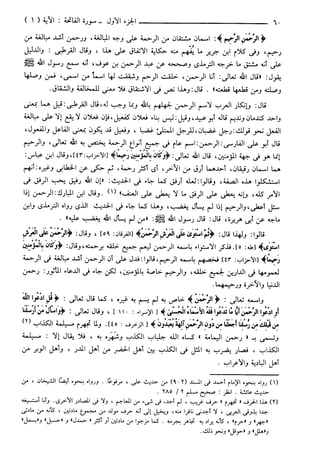 ٦٠ الجزء الأول - سورة الفاتحة: الآية (١)
﴿الرَّحْمَنِ الرَّحِيمِ﴾ اسمان مشتقان من الرحمة على وجه المبالغة، ورحمن أشد مبالغة من
رحيم، وفي كلام ابن جرير ما يُفهم منه حكاية الاتفاق على هذا، وقال القرطبي: والدليل
على أنه مشتق ما خرجه الترمذي وصححه عن عبد الرحمن بن عوف، أنه سمع رسول الله ﷺ
يقول: «قال الله تعالى: أنا الرحمن، خلقت الرحم وشققت لها اسماً من اسمي، فمن وصلها
وصلته ومن قطعها قطعته». قال: وهذا نص في الاشتقاق فلا معنى للمخالفة والشقاق.
قال: وإنكار العرب لاسم الرحمن لجهلهم بالله وبما وجب له، قال القرطبي: قيل هما بمعنى
واحد كندمان ونديم قاله أبو عبيد، وقيل: ليس بناء فعلان كفعيل، فإن فعلان لا يقع إلا على مبالغة
الفعل نحو قولك: رجل غضبان، للرجل الممتلئ غضباً، وفعيل قد يكون بمعنى الفاعل والمفعول،
قال أبو علي الفارسي: الرحمن: اسم عام في جميع أنواع الرحمة يختص به الله تعالى، والرحيم
إنما هو في جهة المؤمنين، قال الله تعالى: ﴿وَكَانَ بِالْمُؤْمِنِينَ رَحِيمًا﴾ [الأحزاب: ٤٣]، وقال ابن عباس:
هما اسمان رقيقان، أحدهما أرق من الآخر، أي أكثر رحمة، ثم حكي عن الخطابي وغيره: أنهم
استشكلوا هذه الصفة، وقالوا: لعله أرفق كما جاء في الحديث: «إن الله رفيق يحب الرفق في
الأمر كله، وإنه يعطي على الرفق ما لا يعطي على العنف»(١). وقال ابن المبارك: الرحمن إذا
سئل أعطى، والرحيم إذا لم يسأل يغضب، وهذا كما جاء في الحديث الذي رواه الترمذي وابن
ماجه عن أبي هريرة، قال: قال رسول الله ﷺ: «من لم يسأل الله يغضب عليه».
قالوا: ولهذا قال: ﴿ثُمَّ اسْتَوَى عَلَى الْعَرْشِ الرَّحْمَنُ﴾ [الفرقان: ٥٩]، وقال: ﴿الرَّحْمَنُ عَلَى الْعَرْشِ
اسْتَوَى﴾ [طه: ٥]. فذكر الاستواء باسمه الرحمن ليعم جميع خلقه برحمته، وقال: ﴿وَكَانَ بِالْمُؤْمِنِينَ
رَحِيمًا﴾ [الأحزاب: ٤٣] فخصهم باسمه الرحيم، قالوا: فدل على أن الرحمن أشد مبالغة في الرحمة
لعمومها في الدارين لجميع خلقه، والرحيم خاصة بالمؤمنين، لكن جاء في الدعاء المأثور: رحمن
الدنيا والآخرة ورحيمهما.
واسمه تعالى: ﴿الرَّحْمَنِ﴾ خاص به لم يسم به غيره، كما قال تعالى: ﴿قُلِ ادْعُوا اللَّهَ
أَوِ ادْعُوا الرَّحْمَنَ أَيًّا مَا تَدْعُوا فَلَهُ الْأَسْمَاءُ الْحُسْنَى﴾ [الإسراء: ١١٠]، وقال تعالى: ﴿وَاسْأَلْ مَنْ أَرْسَلْنَا
مِنْ قَبْلِكَ مِنْ رُسُلِنَا أَجَعَلْنَا مِنْ دُونِ الرَّحْمَنِ آلِهَةً يُعْبَدُونَ﴾ [الزخرف: ٤٥]. ولما تجهرم مسيلمة الكذاب(٢)
وتسمى بـ «رحمن اليمامة» كساه الله جلباب الكذب وشهر به، فلا يقال إلا: مسيلمة
الكذاب، فصار يضرب به المثل في الكذب بين أهل الحضر من أهل المدر، وأهل الوبر من
أهل البادية والأعراب.